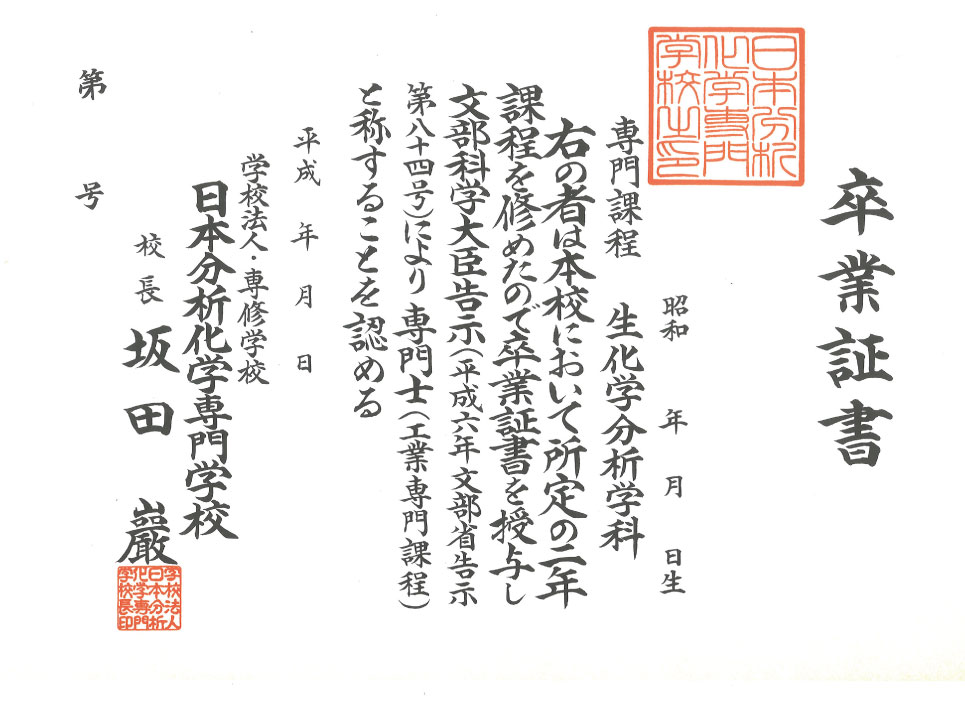 卒業証書
日本分析
化学専門
学校之印
昭和 年 月 日生
専門課程 生化学分析学科
右の者は本校において所定の二年
課程を修めたので卒業証書を授与し
文部科学大臣告示(平成六年文部省告示
第八十四号)により専門士(工業専門課程)
と称することを認める
平成 年 月 日
学校法人・専修学校
日本分析化学専門学校
校長 坂田 巖
学校法人
日本分析
化学専門
学校長印
第 号